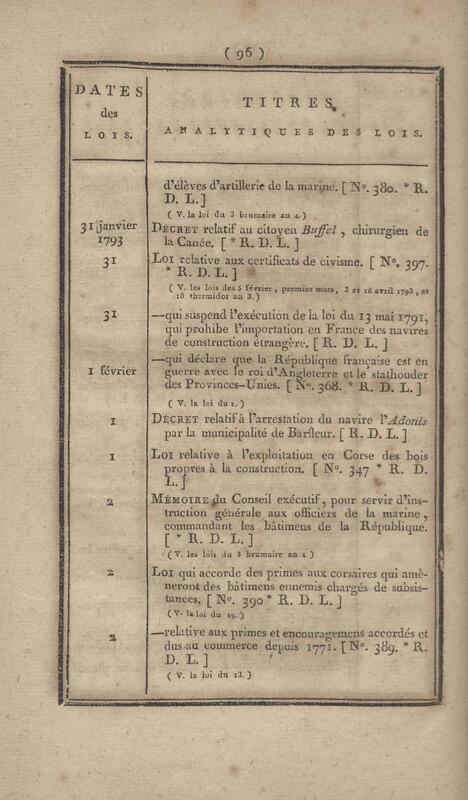 ( 96 )
DATES
des
LOIS.
TITRES
ANALYTIQUES DES LOIS.
d'élèves d'artillerie de la marine. [ No. 380. * R.
D. L. ]
( V. la loi du 3 brumaire an 4. )
31 janvier
1793
DÉCRET relatif au citoyen Buffel, chirurgien de
la Canée. [ * R. D. L. ]
31
LOI relative aux certificats de civisme. [ No. 397.
* R. D. L. ]
( V. les lois des 5 février, premier mars, 3 et 16 avril 1793, et
18 thermidor an 3. )
31
—qui suspend l'exécution de la loi du 13 mai 1791,
qui prohibe l'importation en France des navires
de construction étrangère. [ R. D. L. ]
1 février
—qui déclare que la République française est en
guerre avec le roi d'Angleterre et le stathouder
des Provinces-Unies. [ No. 368. * R. D. L. ]
( V. la loi du 2. )
1
DÉCRET relatif à l'arrestation du navire l'Adonis
par la municipalité de Barfleur. [ R. D. L. ]
1
LOI relative à l'exploitation en Corse des bois
propres à la construction. [ No. 347 * R. D.
L. ]
2
MÉMOIRE du Conseil exécutif, pour servir d'ins-
truction générale aux officiers de la marine,
commandant les bâtimens de la République.
[ * R. D. L. ]
( V. les lois du 3 brumaire an 4. )
2
LOI qui accorde des primes aux corsaires qui amè-
neront des bâtimens ennemis chargés de subsis-
tances. [ No. 390 * R. D. L. ]
( V. la loi du 19. )
2
—relative aux primes et encouragemens accordés et
dus au commerce depuis 1771. [ No. 389. * R.
D. L. ]
( V. la loi du 13. )